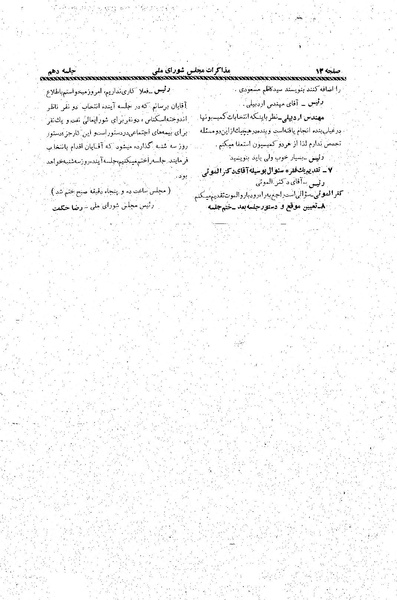 صفحه ۱۴
مذاکرات مجلس شورای ملی
جلسه دهم
را اضافه کنند بنویسند سیدکاظم مسعودی .
رئیس ـ آقای مهندس اردبیلی .
مهندس اردبیلی ـ نظر باینکه انتخابات کمیسیونها
در غیاب بنده انجام یافته است و بنده در هیچیک از این دو مسئله
تخصص ندارم لذا از هر دو کمیسیون استعفا میکنم .
رئیس ـ بسیار خوب ولی باید بنویسید
۷ ـ تقدیم یک فقره سئوال بوسیله آقای دکتر الموتی
رئیس ـ آقای دکتر الموتی
دکتر الموتی ـ سؤالی است راجع به راه رودبار و الموت تقدیم میکنم
۸ ـ تعیین موقع و دستور جلسه بعد ـ ختم جلسه
رئیس ـ فعلا کاری نداریم، امروز میخواستم باطلاع
آقایان برسانم که در جلسه آینده انتخاب دو نفر ناظر
اندوخته اسکناس، دو نفر برای شورایعالی نفت و یک نفر
برای بیمه‌های اجتماعی در دستور است و این تا رجز دستور
روز سه شنبه گذارده میشود که آقایان اقدام بانتخاب
فرمایند. جلسه را ختم میکنیم، جلسه آینده روز سه‌شنبه خواهد
بود .
( مجلس ساعت ده و پنجاه دقیقه صبح ختم شد )
رئیس مجلس شورای ملی ـ رضا حکمت